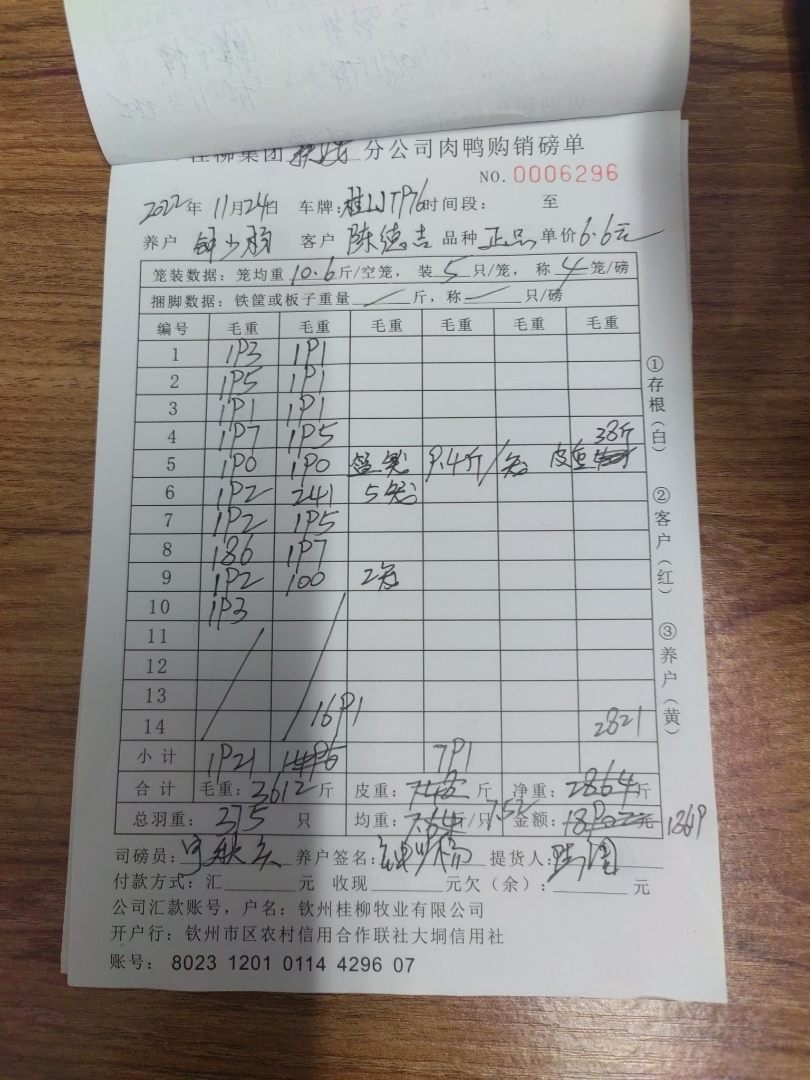 桂柳集团 分公司肉鸭购销磅单
NO. 0006296
2022年 11月24日 车牌: 时间段: 至
养户 客户 陈德吉 品种 正品 单价 6.6元
笼装数据: 笼均重 10.6 斤/空笼, 装 5 只/笼, 称 4 笼/磅
捆脚数据: 铁筐或板子重量 斤, 称 只/磅
编号 毛重 毛重 毛重 毛重 毛重 毛重
1 193 191
2 195 191
3 191 191
4 197 195 38斤
5 190 190 9.4斤/笼 皮重
6 192 241 5笼
7 192 195
8 186 197
9 192 100 2笼
10 193
11
12
13
14 1691 2821
小计 1921 791
合计 毛重: 3612 斤 皮重: 斤 净重: 2864 斤
总羽重: 375 只 均重: 7.64 斤/只 7.52 金额: 元
司磅员: 养户签名: 提货人:
付款方式: 汇 元 收现 元欠(余): 元
公司汇款账号, 户名: 钦州桂柳牧业有限公司
开户行: 钦州市区农村信用合作联社大垌信用社
账号: 8023 1201 0114 4296 07
①存根(白)
②客户(红)
③养户(黄)